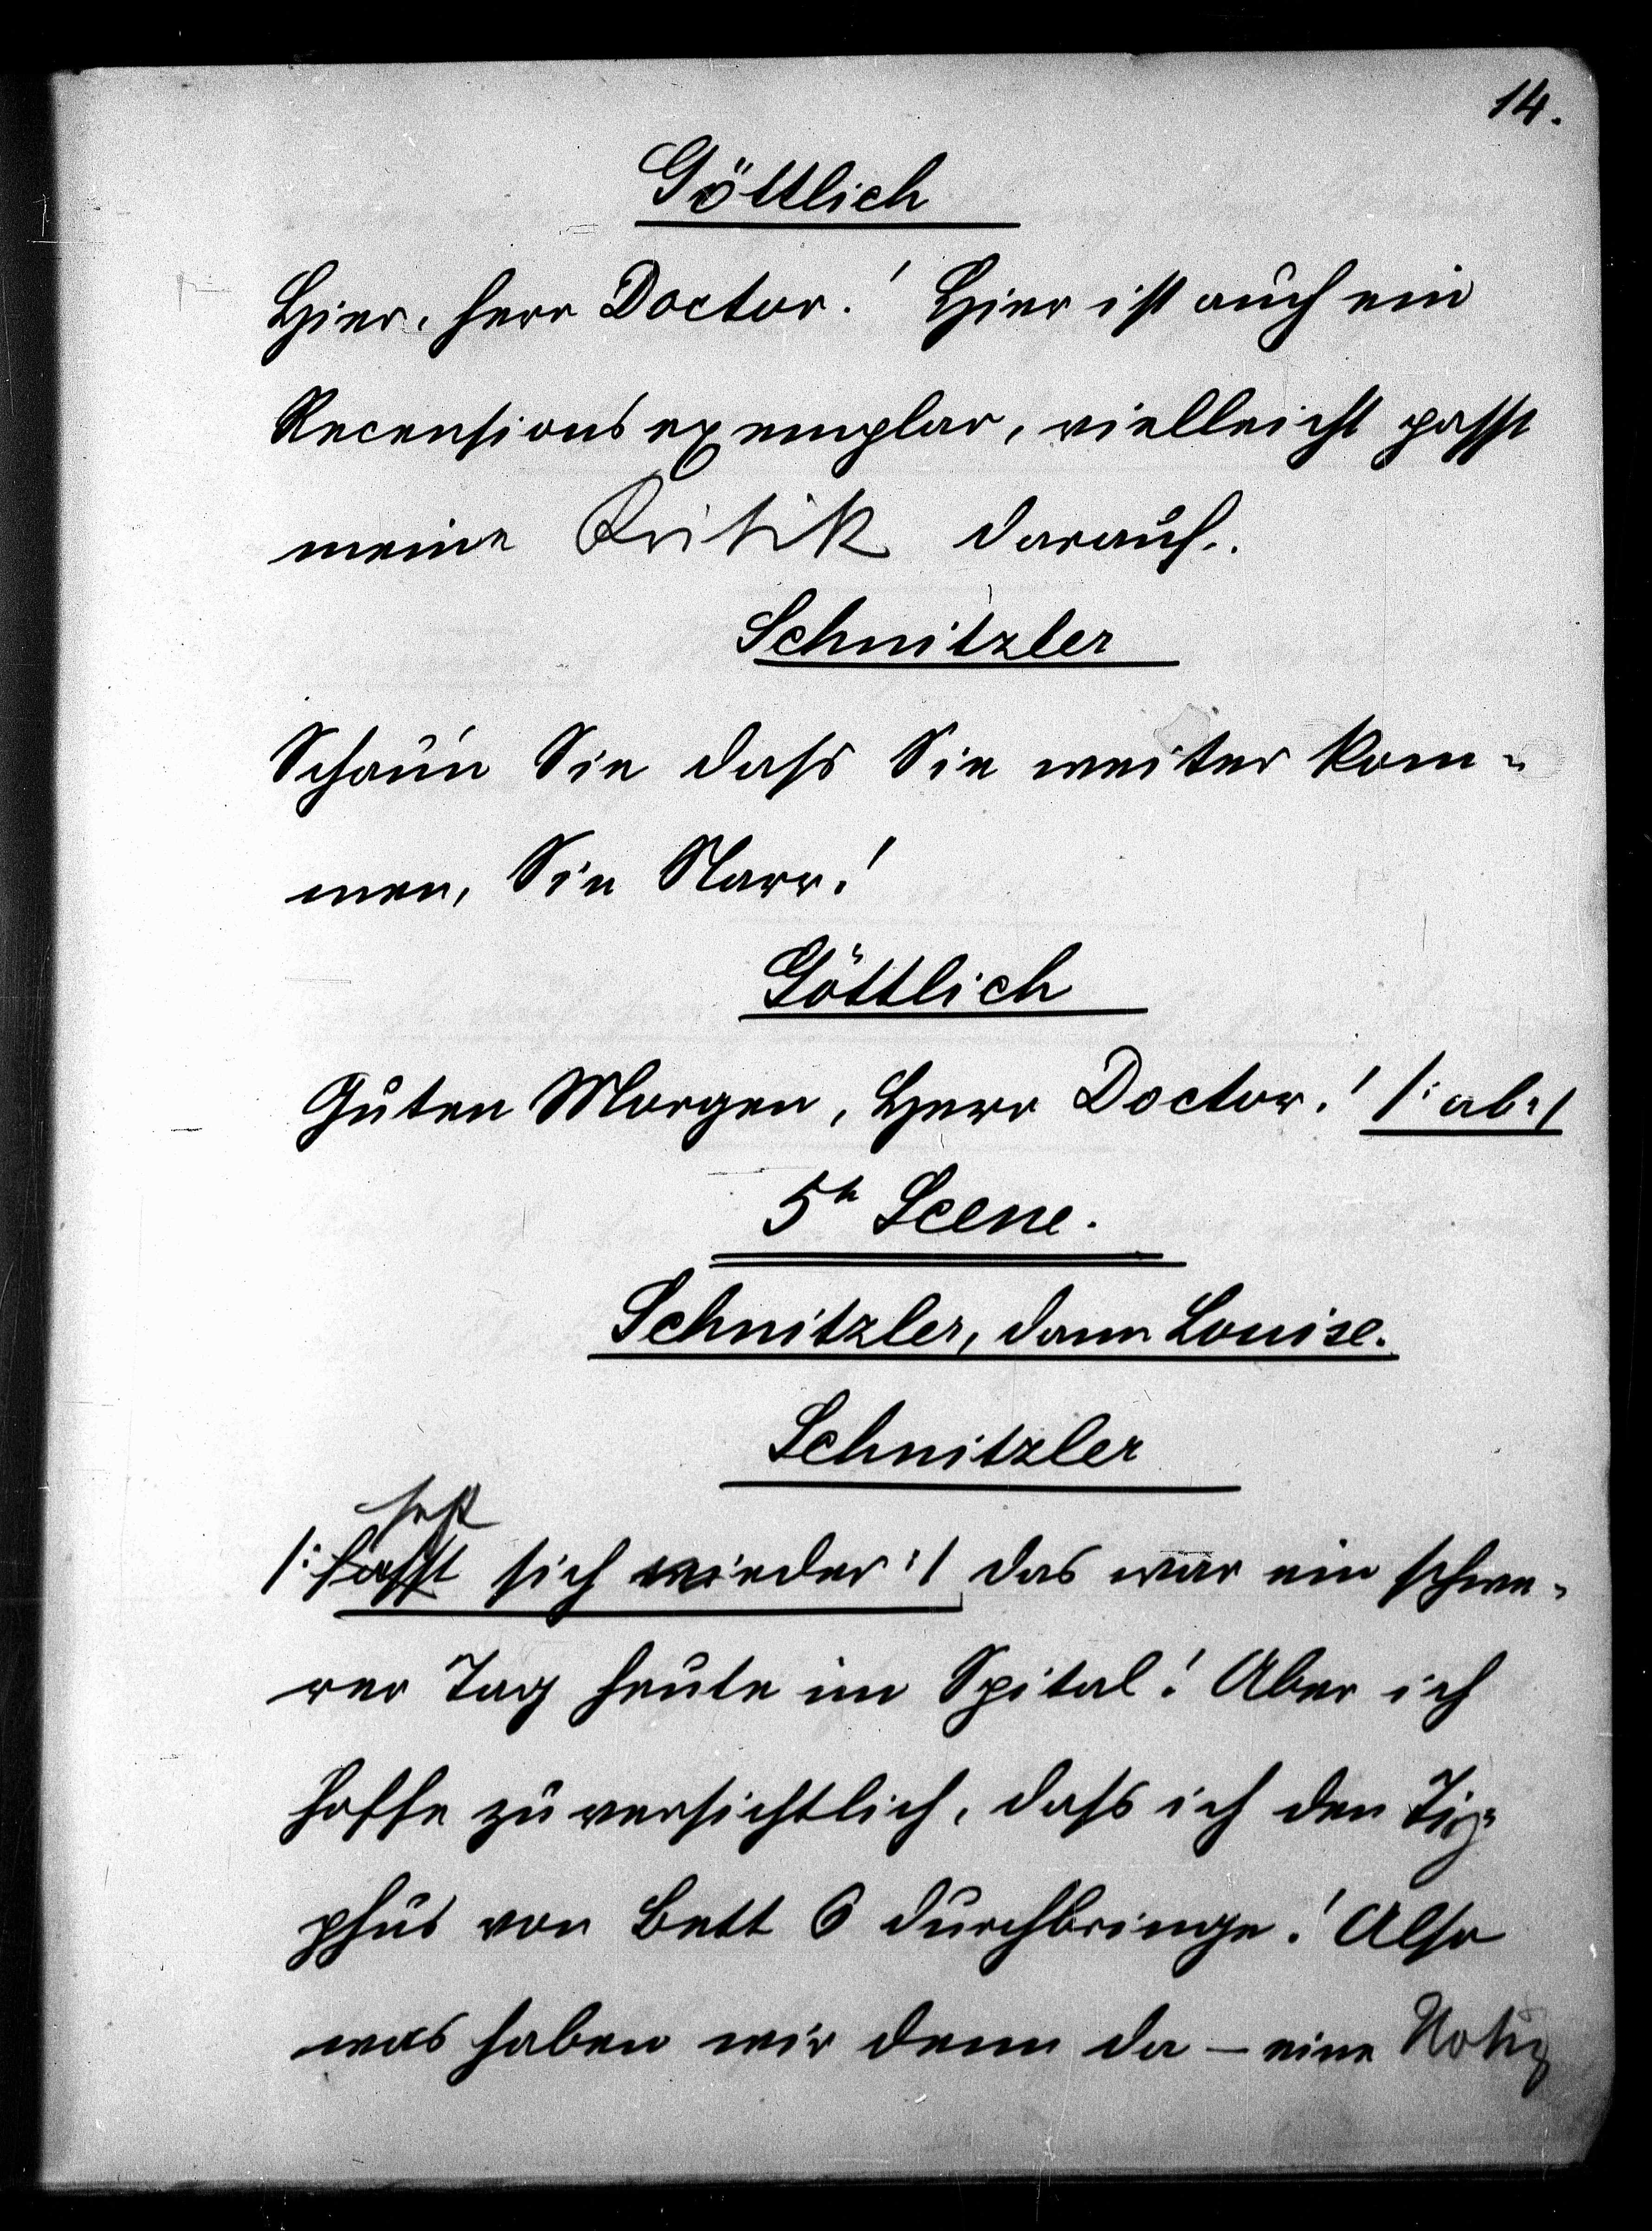 14.
Göttlich
Hier, Herr Doctor! Hier ist auch ein
Recensionsexemplar, vielleicht passt
meine Kritik darauf.
Schnitzler
Schau'n Sie dass Sie weiter kom-
men, Sie Narr!
Göttlich
Guten Morgen, Herr Doctor! /: ab :/
5te Scene.
Schnitzler, dann Louise.
Schnitzler
setzt
/: fasst sich wieder :/ das war ein schwe-
rer Tag heute im Spital! Aber ich
hoffe zuversichtlich, dass ich den Ty-
phus von Bett 6 durchbringe! Also
was haben wir denn da – eine Notiz